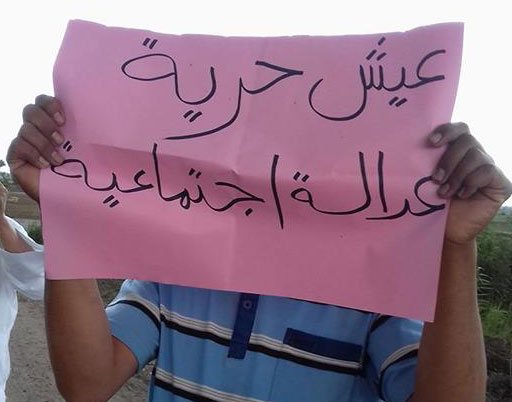 عيش حرية
عدالة اجتماعية